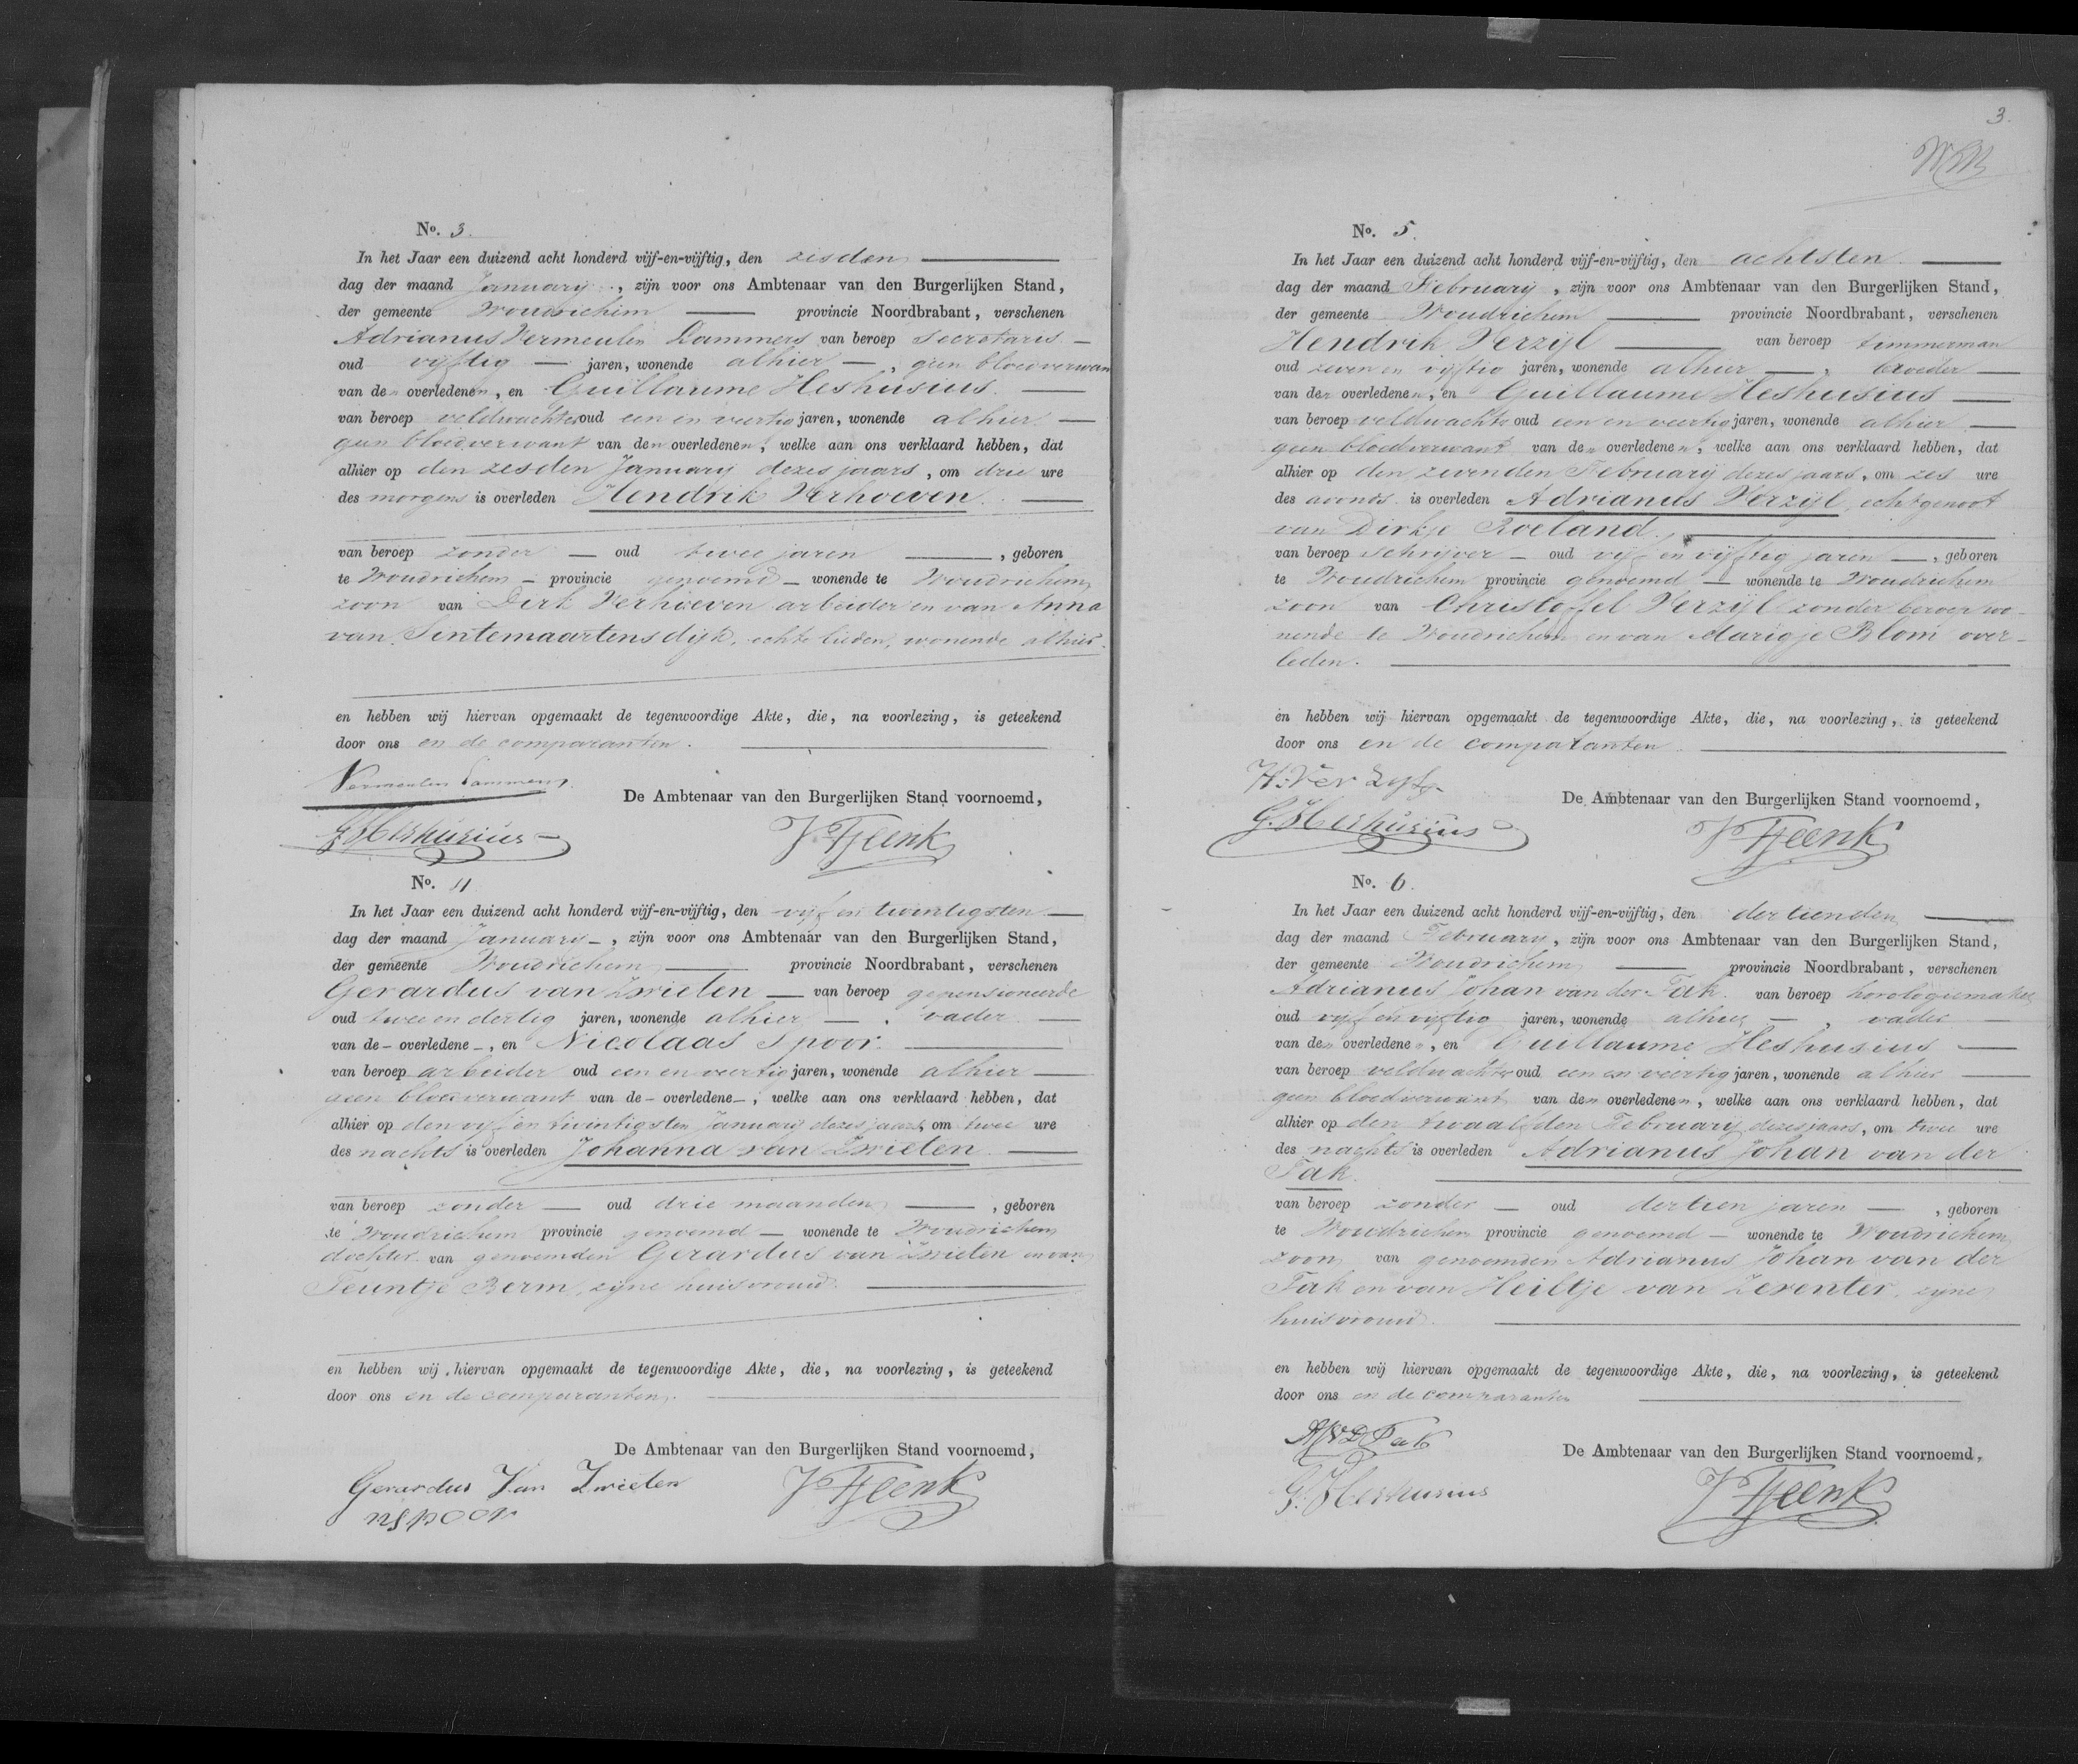 No. 3.
In het Jaar een duizend acht honderd vijf-en-vijftig, den zesden
dag der maand January, zijn voor ons Ambtenaar van den Burgerlijken Stand,
der gemeente Woudrichem provincie Noordbrabant, verschenen
Adrianus Vermeulen Lammers van beroep Secretaris
oud vijftig jaren, wonende alhier, geen bloedverwan
van den overledenen, en Guillaume Heshusius
van beroep veldwachter oud een en veertig jaren, wonende alhier
geen bloedverwant van den overledenen, welke aan ons verklaard hebben, dat
alhier op den zesden January dezes jaars, om drie ure
des morgens is overleden Hendrik Verhoeven.
van beroep zonder oud twee jaren, geboren
te Woudrichem provincie genoemd wonende te Woudrichem
zoon van Dirk Verhoeven arbeider en van Anna
van Sintemaartensdijk, echte lieden, wonende alhier.
en hebben wij hiervan opgemaakt de tegenwoordige Akte, die, na voorlezing, is geteekend
door ons en de comparanten.
Vermeulen Lammers
De Ambtenaar van den Burgerlijken Stand voornoemd,
G. Heshusius
V Tjeenk
No. 4
In het Jaar een duizend acht honderd vijf-en-vijftig, den vijf en twintigsten
dag der maand January, zijn voor ons Ambtenaar van den Burgerlijken Stand,
der gemeente Woudrichem provincie Noordbrabant, verschenen
Gerardus van Zwieten van beroep gepensioneerde
oud twee en dertig jaren, wonende alhier, vader
van de overledene, en Nicolaas Spoor.
van beroep arbeider oud een en veertig jaren, wonende alhier
geen bloedverwant van de overledene, welke aan ons verklaard hebben, dat
alhier op den vijf en twintigsten January dezes jaars, om twee ure
des nachts is overleden Johanna van Zwieten
van beroep zonder oud drie maanden, geboren
te Woudrichem provincie genoemd wonende te Woudrichem
dochter van genoemden Gerardus van Zwieten en van
Teuntje Berm, zijne huisvrouw.
en hebben wij hiervan opgemaakt de tegenwoordige Akte, die, na voorlezing, is geteekend
door ons en de comparanten.
De Ambtenaar van den Burgerlijken Stand voornoemd,
Gerardus Van Zwieten
V Tjeenk
n spoor
3.
No. 5.
In het Jaar een duizend acht honderd vijf-en-vijftig, den achtsten
dag der maand February, zijn voor ons Ambtenaar van den Burgerlijken Stand,
der gemeente Woudrichem provincie Noordbrabant, verschenen
Hendrik Verzijl van beroep timmerman
oud zeven en vijftig jaren, wonende alhier, broeder
van den overledenen, en Guillaume Heshusius
van beroep veldwachter oud een en veertig jaren, wonende alhier
geen bloedverwant van den overledenen, welke aan ons verklaard hebben, dat
alhier op den zevenden February dezes jaars, om zes ure
des avonds is overleden Adrianus Verzijl, echtgenoot
van Dirkje Roeland.
van beroep schrijver oud vijf en vijftig jaren, geboren
te Woudrichem provincie genoemd wonende te Woudrichem
zoon van Christoffel Verzijl zonder beroep wo-
nende te Woudrichem en van Marigje Blom over-
leden.
en hebben wij hiervan opgemaakt de tegenwoordige Akte, die, na voorlezing, is geteekend
door ons en de comparanten
H: Ver Zijl
De Ambtenaar van den Burgerlijken Stand voornoemd,
G. Heshusius
V Tjeenk
No. 6.
In het Jaar een duizend acht honderd vijf-en-vijftig, den dertienden
dag der maand February, zijn voor ons Ambtenaar van den Burgerlijken Stand,
der gemeente Woudrichem provincie Noordbrabant, verschenen
Adrianus Johan van der Tak. van beroep horologiemaker
oud vijf en vijftig jaren, wonende alhier, vader
van den overledenen, en Guillaume Heshusius
van beroep veldwachter oud een en veertig jaren, wonende alhier
geen bloedverwant van den overledenen, welke aan ons verklaard hebben, dat
alhier op den twaalfden February dezes jaars, om twee ure
des nachts is overleden Adrianus Johan van der
Tak.
van beroep zonder oud dertien jaren, geboren
te Woudrichem provincie genoemd wonende te Woudrichem
zoon van genoemden Adrianus Johan van der
Tak en van Heiltje van Zeventer, zijne
huisvrouw.
en hebben wij hiervan opgemaakt de tegenwoordige Akte, die, na voorlezing, is geteekend
door ons en de comparanten
AJ VD Tak
De Ambtenaar van den Burgerlijken Stand voornoemd,
G. Heshusius
V Tjeenk